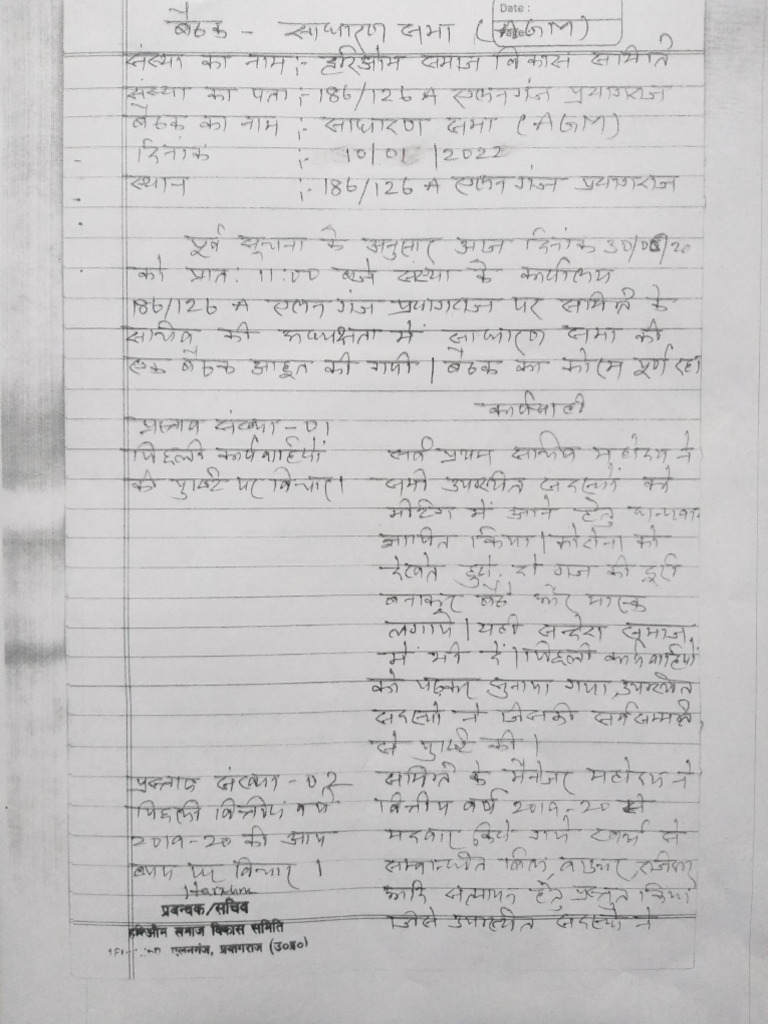 Date :
बैठक - साधारण सभा (AGM)
संस्था का नाम :- हरिओम समाज विकास समिति
संस्था का पता :- 186/126 A एलनगंज प्रयागराज
बैठक का नाम :- साधारण सभा (AGM)
दिनांक :- 10/01/2022
स्थान :- 186/126 A एलनगंज प्रयागराज
पूर्व सूचना के अनुसार आज दिनांक 30/06/20
को प्रात: 11:00 बजे संस्था के कार्यालय
186/126 A एलनगंज प्रयागराज पर समिति के
सचिव की अध्यक्षता में साधारण सभा की
एक बैठक आहूत की गयी । बैठक का कोरम पूर्ण रहा
कार्यवाही
प्रस्ताव संख्या - 01
पिछली कार्यवाहियों
की पुष्टि पर विचार।
सर्व प्रथम सचिव महोदय ने
सभी उपस्थित सदस्यों को
मीटिंग में आने हेतु धन्यवाद
ज्ञापित किया । कोरोना को
देखते हुये, दो गज की दूरी
बनाकर बैठे और मास्क
लगाये । यही सन्देश समाज
में भी दें । पिछली कार्यवाहियों
को पढ़कर सुनाया गया, उपस्थित
सदस्यों ने जिसकी सर्वसम्मति
से पुष्टि की ।
प्रस्ताव संख्या - 02
पिछली वित्तीय वर्ष
2019-20 की आय
व्यय पर विचार ।
समिति के मैनेजर महोदय ने
वित्तीय वर्ष 2019-20 से
मदवार किये गये खर्च से
सम्बन्धित बिल, वाउचर, रजिस्टर
आदि सत्यापन हेतु प्रस्तुत किया
जिसे उपस्थित सदस्यों ने
प्रबन्धक/सचिव
हरिओम समाज विकास समिति
एलनगंज, प्रयागराज (उ०प्र०)